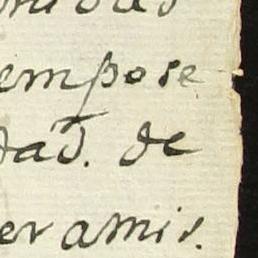 empose
dad. de
er amis.